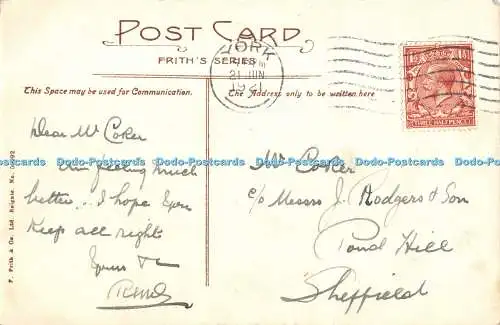 POST CARD
FRITH'S SERIES
YORK
21 JUN
1921
THREE HALF PENCE
This Space may be used for Communication.
The Address only to be written here
Dear Mr Coker
Am feeling much
better.. I hope you
keep all right
Yours
Mr Coker
c/o Messrs J. Rodgers & Son
Pond Hill
Sheffield
F. Frith & Co. Ltd. Reigate. No.
Dodo-Postcards Dodo-Postcards Dodo-Postcards Dodo-Postcards